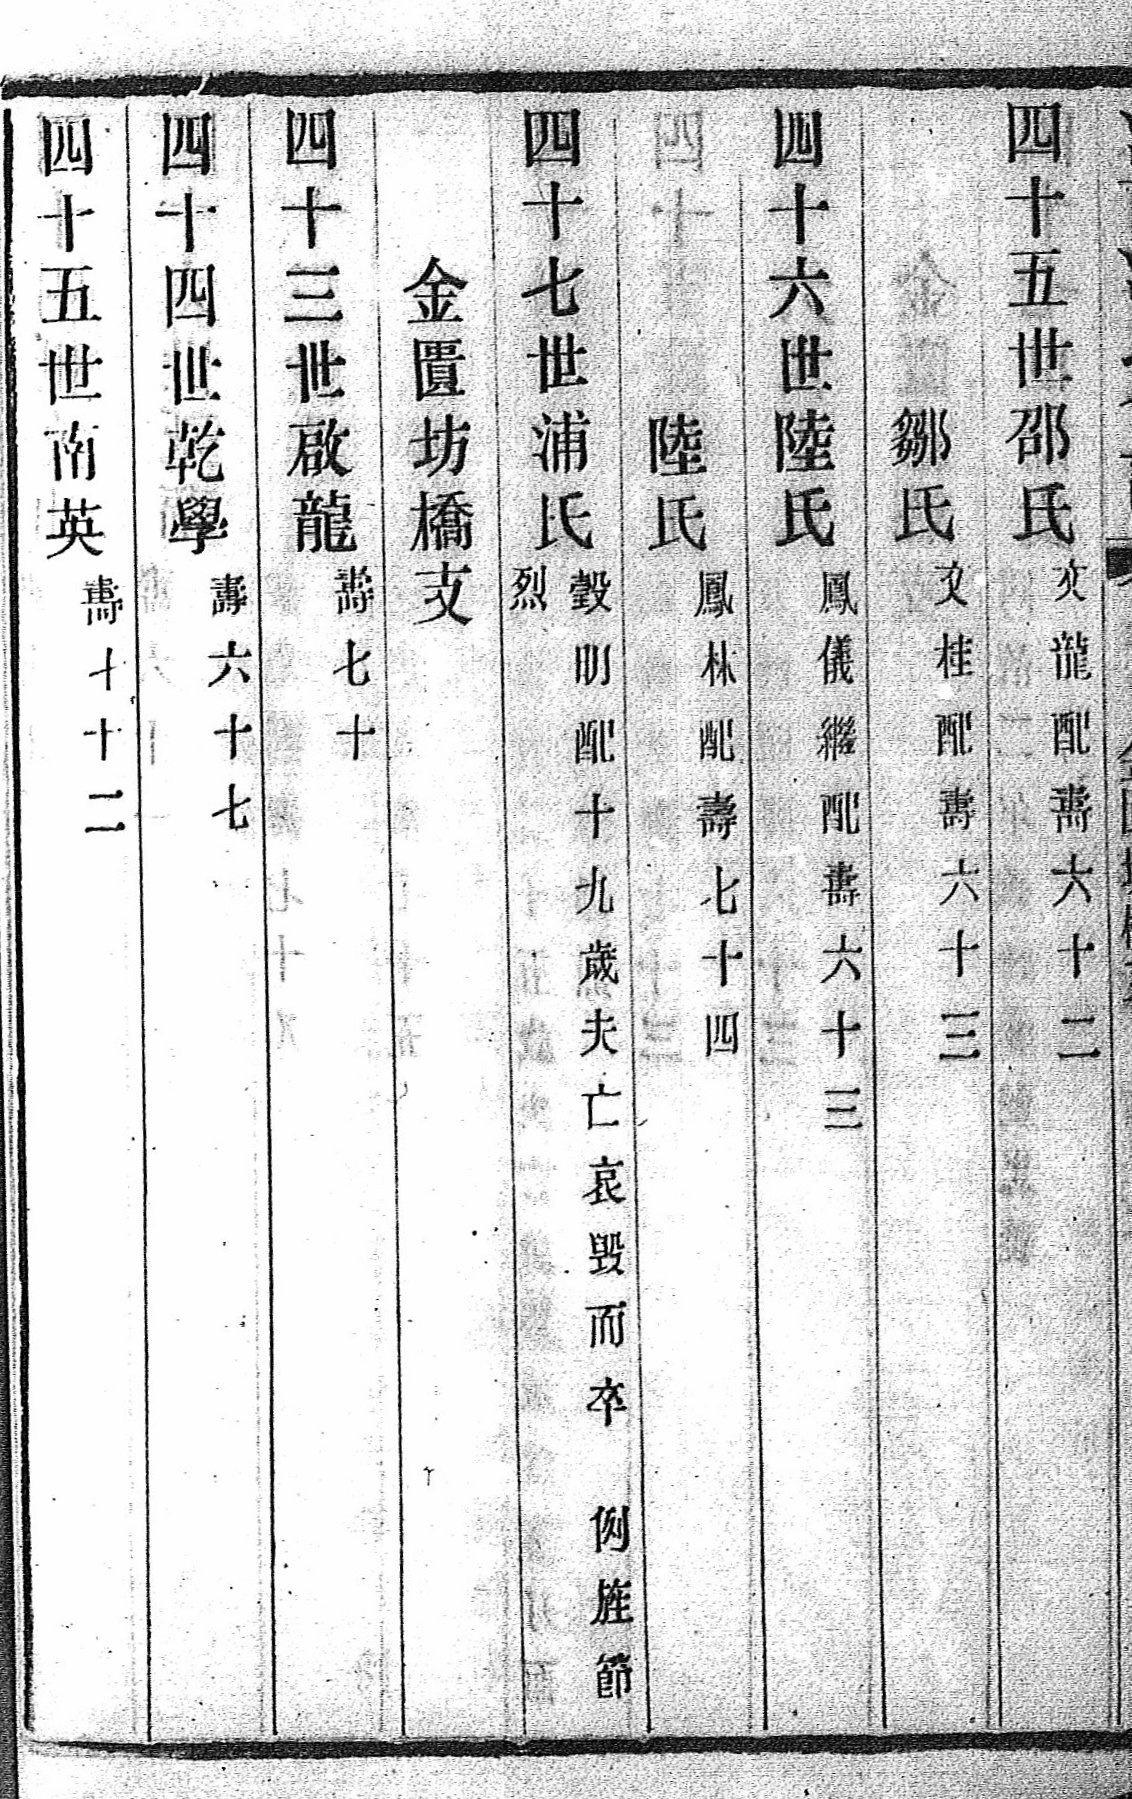 四十五世邵氏 文龍配壽六十二
鄒氏 文桂配壽六十三
四十六世陸氏 鳳儀繼配壽六十三
陸氏 鳳林配壽七十四
四十七世浦氏 瑴明配十九歲夫亡哀毀而卒 例旌節
烈
金匱坊橋支
四十三世啟龍 壽七十
四十四世乾學 壽六十七
四十五世南英 壽十二